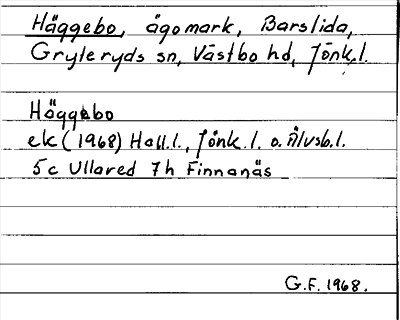 Häggebo, ägomark, Barslida,
Gryteryds sn, Västbo hd, Jönk.l.
Häggebo
ek (1968) Hall.l., Jönk.l. o. Älvsb.l.
5c Ullared 7h Finnanäs
G.F. 1968.